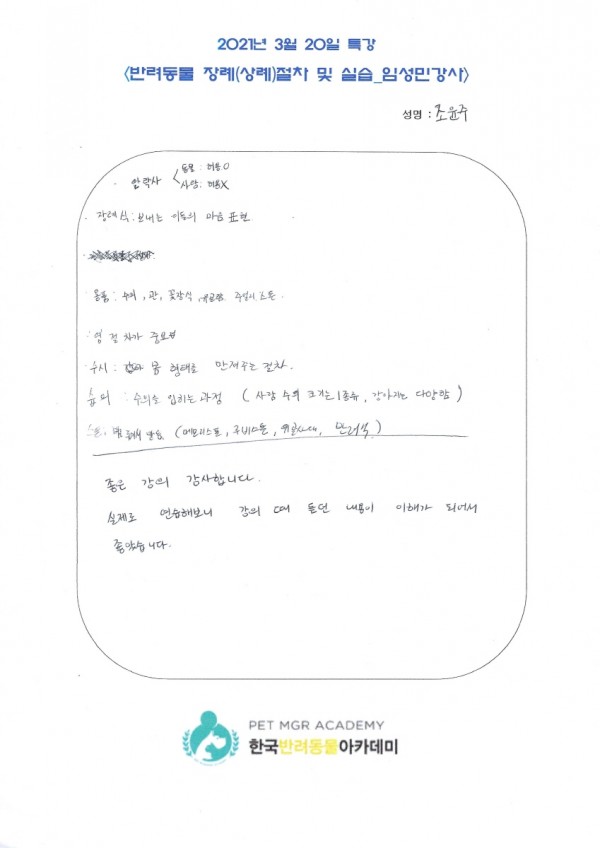 2021년 3월 20일 특강
<반려동물 장례(상례)절차 및 실습_임성민강사>
성명 : 조윤주
· 안락사 < 동물 : 허용O
사람 : 허용X
· 장례식 : 보내는 이들의 마음 표현.
· 용품 : 수의, 관, 꽃장식, 유골함
· 염 절차가 중요
· 수시 : 몸 형태를 만져주는 절차.
: 수의를 입히는 과정 (사람 수의 크기는 1종류, 강아지는 다양함)
(메모리스톤, 루비스톤, 반려석)
좋은 강의 감사합니다.
실제로 연습해보니 강의 때 들던 내용이 이해가 되어서
좋았습니다.
PET MGR ACADEMY
한국반려동물아카데미